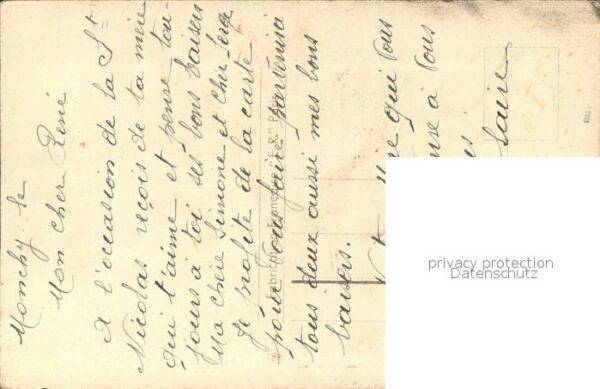 Monchy le
Mon cher René
A l'occasion de la St
Nicolas reçois de ta mère
qui t'aime et pense tou-
jours à toi ses bons baisers
Ma chère Simone et cher Serge
Je profite de la carte
pour vous faire parvenir
tous deux aussi mes bons
baisers.
qui vous
à vous
privacy protection
Datenschutz